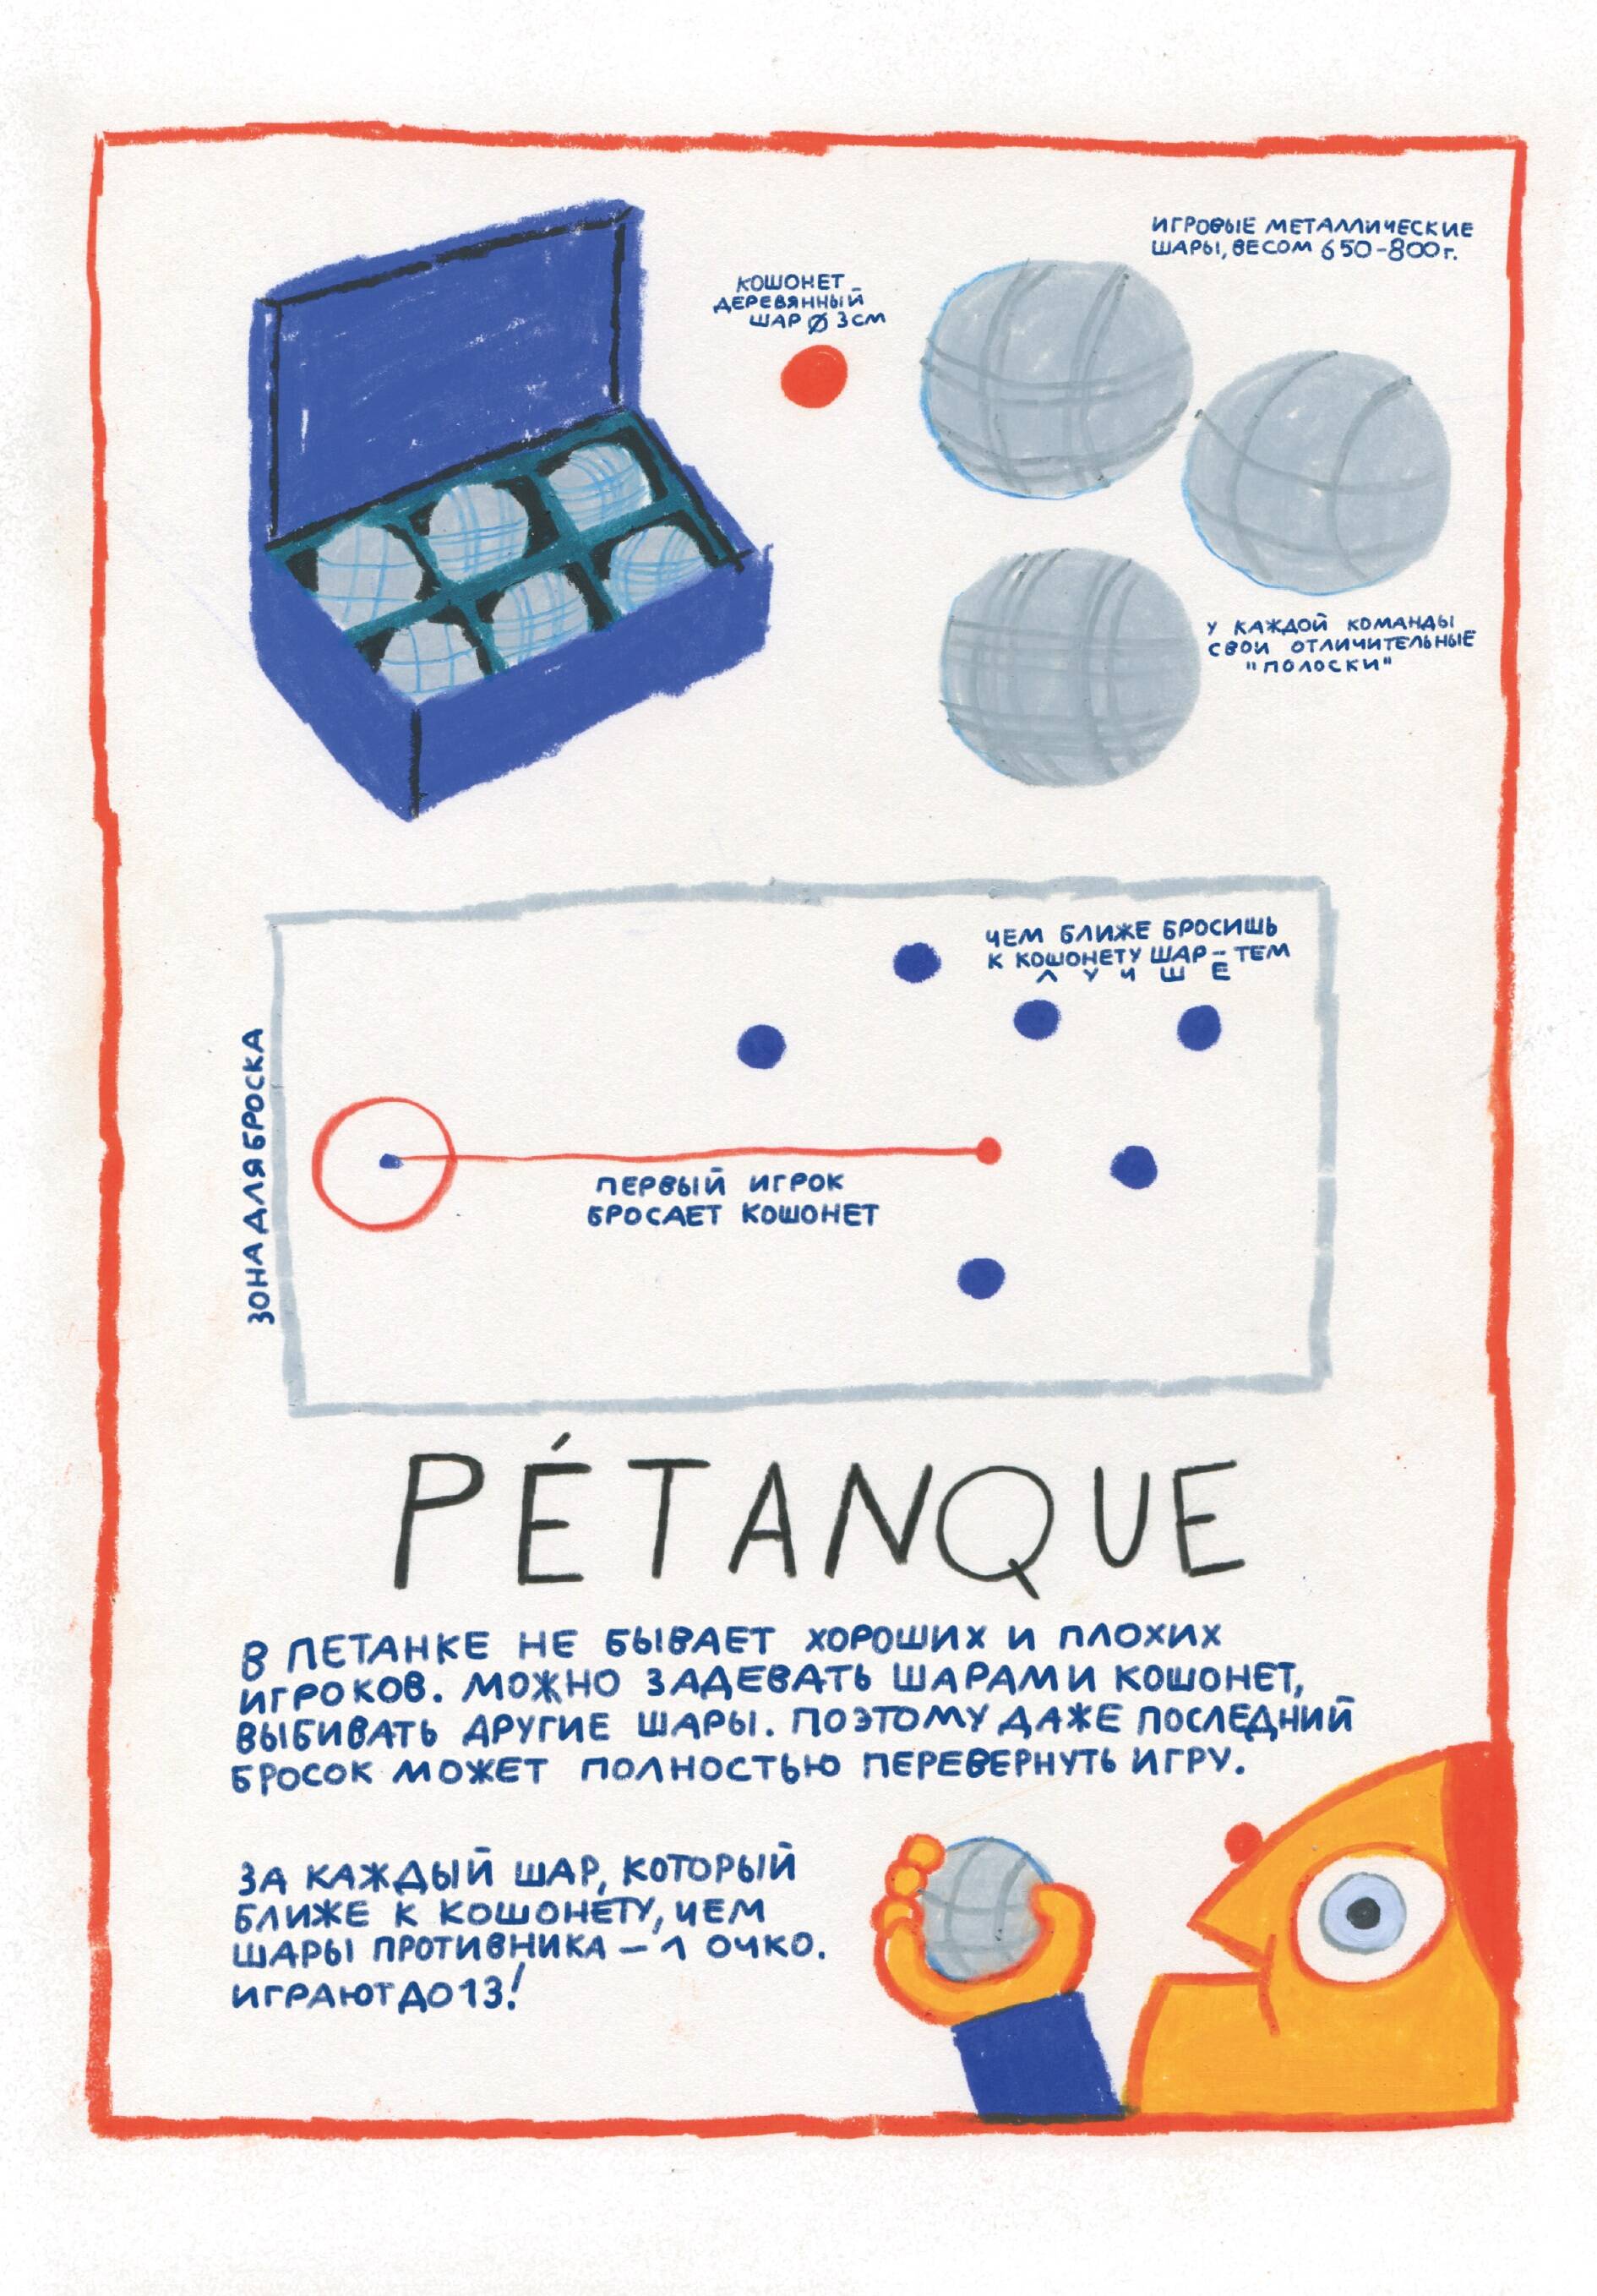 ИГРОВЫЕ МЕТАЛЛИЧЕСКИЕ
ШАРЫ, ВЕСОМ 650-800г.
КОШОНЕТ -
ДЕРЕВЯННЫЙ
ШАР Ø 3СМ
У КАЖДОЙ КОМАНДЫ
СВОИ ОТЛИЧИТЕЛЬНЫЕ
"ПОЛОСКИ"
ЧЕМ БЛИЖЕ БРОСИШЬ
К КОШОНЕТУ ШАР - ТЕМ
ЛУЧШЕ
ЗОНА ДЛЯ БРОСКА
ПЕРВЫЙ ИГРОК
БРОСАЕТ КОШОНЕТ
PÉTANQUE
В ПЕТАНКЕ НЕ БЫВАЕТ ХОРОШИХ И ПЛОХИХ
ИГРОКОВ. МОЖНО ЗАДЕВАТЬ ШАРАМИ КОШОНЕТ,
ВЫБИВАТЬ ДРУГИЕ ШАРЫ. ПОЭТОМУ ДАЖЕ ПОСЛЕДНИЙ
БРОСОК МОЖЕТ ПОЛНОСТЬЮ ПЕРЕВЕРНУТЬ ИГРУ.
ЗА КАЖДЫЙ ШАР, КОТОРЫЙ
БЛИЖЕ К КОШОНЕТУ, ЧЕМ
ШАРЫ ПРОТИВНИКА – 1 ОЧКО.
ИГРАЮТ ДО 13!